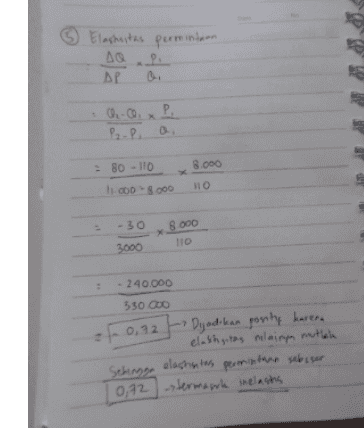 ⑤ Elastisitas permintaan
: ΔQ/ΔP × P₁/Q₁
: Q₂-Q₁/P₂-P₁ × P₁/Q₁
= 80 - 110/11.000 - 8.000 × 8.000/110
= -30/3000 × 8.000/110
: -240.000/330.000
= - 0,72 → Dijadikan positif karena
elastisitas nilainya mutlak
Sehingga elastisitas permintaan sebesar
0,72 → termasuk inelastis